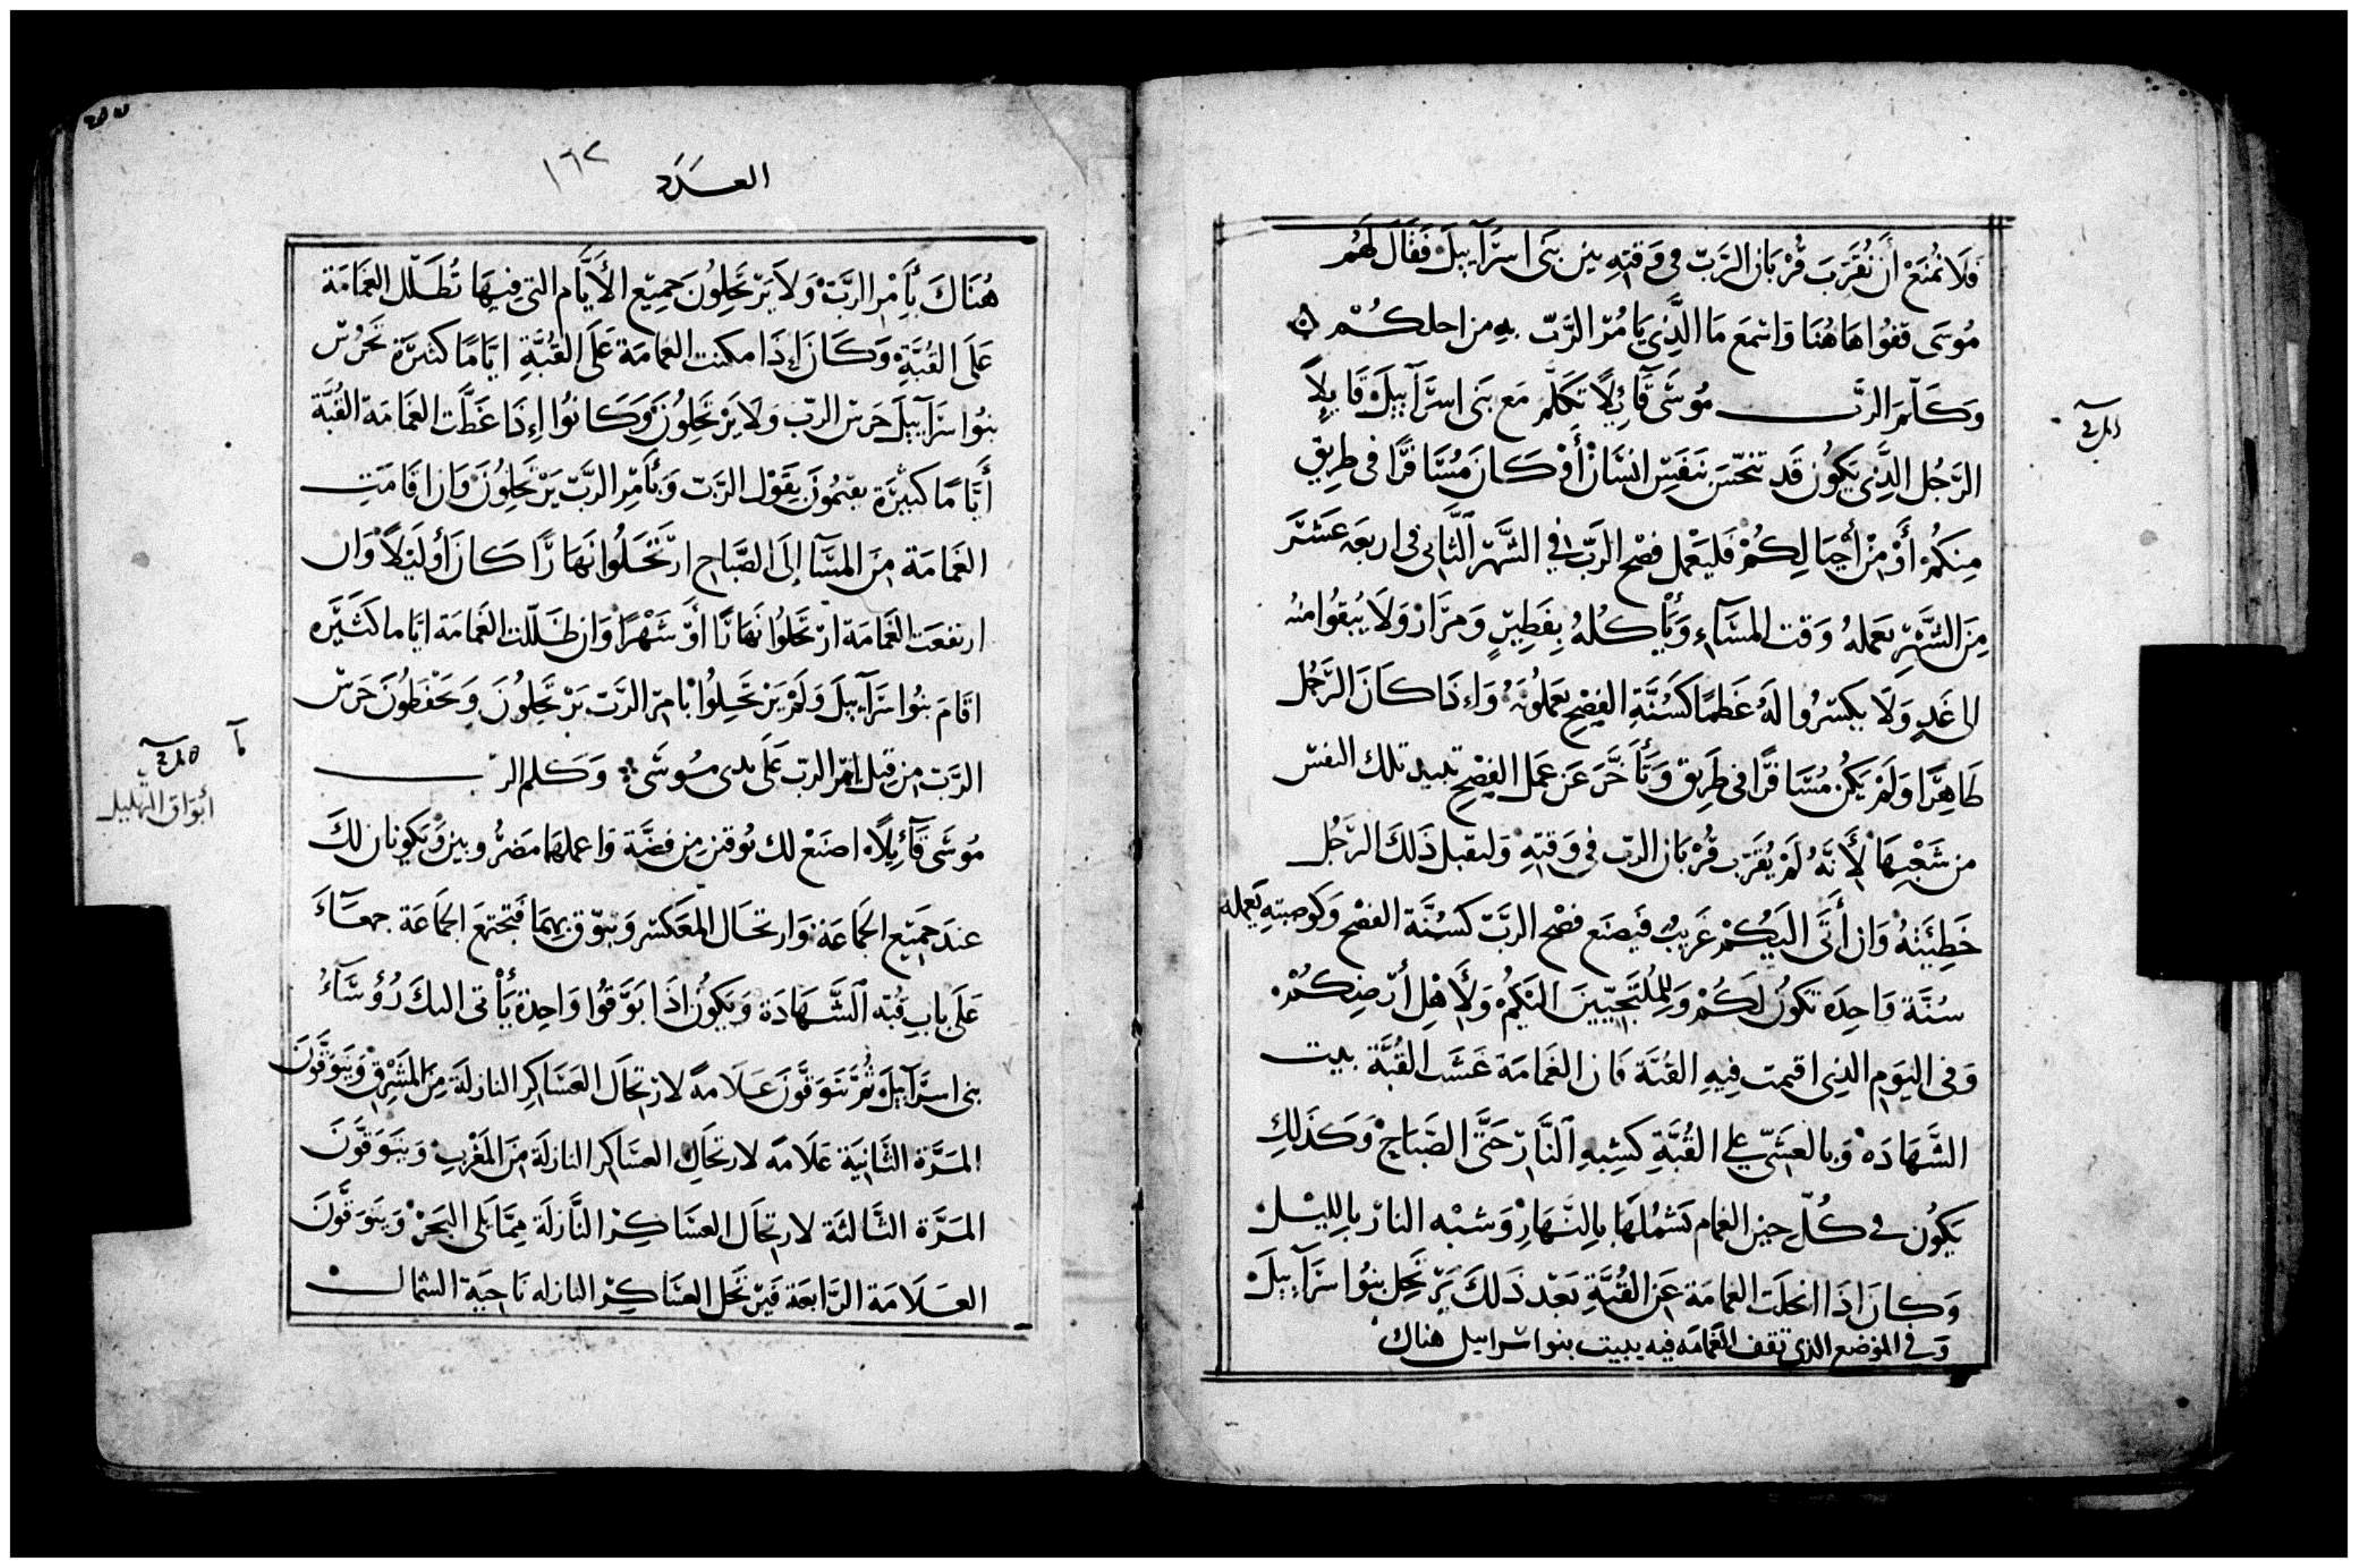 فَلَا نُمْنَعْ أَنْ نُقَرِّبَ قُرْبَان الرَّبّ في وَقتِهِ بين بَنى اسرَآييلَ فَقالَ لَهُم
مُوسَى قفُوا هَاهُنَا وَاسْمَعَ مَا الَّذِي يَامُرُ الرَّبّ بهِ من اجلكُمْ
وَكَلّمَ الرَّب مُوسَى قَآئِلًا تَكَلَّم مَع بَنى اسرَآييلَ قَايلاً
الرّجُل الَّذِي يَكُون قَد تنجّسَ بنَفسِ انسَان أَوْ كَانَ مُسَافرًا في طريقٍ
مِنكُمْ أَوْ مِنْ أَجيَالِكُمْ فَليَعْمل فصْح الرَبّ في الشَّهرِ الثَّانِى فى اربعَه عَشَرَ
مِنَ الشَّهْرِ يَعملهُ وَقت المسَآءِ وَيَأكُلهُ بِفَطِيرٍ وَمرَارْ وَلَا يُبقُوا منهُ
الى غَدٍ وَلَا يكسرُوا لَهُ عَظمًا كَسُنَّةِ الفِصْحِ يَعملُونَهُ وَاِذَا كَانَ الرّجُل
طَاهِرًا وَلَمْ يَكُن مُسَافرًا فى طَرِيق وَتَأَخَّرَ عَن عَمَل الفِصْحِ تبيد تلك النفسْ
من شَعْبِهَا لأَنَّهُ لَمْ يُقَرّب قُرْبَان الربّ في وَقتِهِ وَليقبل ذَلكَ الرَّجُل
خَطِيَّتهُ وَان أَتَى اليَكُمْ غَرِيبٌ فَيصنَع فصْح الرَبّ كَسُنَّة الفصْح وَكوصيتهِ يَعمله
سُنَّة وَاحِدَه تكُونُ لَكُمْ وَلِلمُلتَجِيِينَ الَيكُمْ وَلأَهْلِ أَرْضِكُمْ
وَفى اليَوم الذِى اقيمت فِيهِ القُبّة فَان الغَمَامَة غَشَت القُبَّة بيت
الشَّهَادَه وَبالعَشِيّ على القُبَّةِ كَشِبهِ النَّار حَتَّى الصَّبَاحْ وَكَذَلكِ
يَكُون في كُلّ حين الغمام تَشمُلهَا بالنّهَارِ وَشبْه النار بالليْلْ
وَكانَ اذَا انحلَت الغمامَة عَن القُبَّةِ بَعْد ذَلكَ يَرتحِل بنُوا سرَآييلَ
وَفي الموْضع الذى تقف الغَمَامَه فيه يبيت بنوا سراييل هناك
المرق
العَدَد
١٦٢
هُنَاكَ بأَمْر الرَّبّ وَلَا يَرتَحِلُونَ جَمِيع الأَيَّام التي فيهَا تُظَلّل الغَمَامَة
عَلَى القُبَّةِ وَكَان إذَا مكثت الغمامَة عَلَى القُبَّةِ ايّامًا كثيرَة تَحَرُسْ
بنُوا سرَآييلَ حَرَس الربّ وَلَا يَرْتَحِلُونَ وَكَانُوا إِذَا غَطَّت الغَمَامَة القُبَّة
أَيَّامًا كَبيْرَة يقيمُونَ بقَوْل الرَبّ وَبأَمْر الرَبّ يَرْتَحِلُونَ وَان اقَامَت
الغَمَامَة مِنَ المَسَآ إِلَى الصَّبَاحِ ارتَحَلُوا نَهَارًا كَان أَوليْلاً وَان
ارتفعَت الغَمَامَة ارْتَحَلُوا نَهَارًا أَوْ شَهْرًا وَان ظَلّلت الغَمامَة ايّاما كَثيَره
اقَامَ بنُوا سرَآييلَ وَلَمْ يَرْتَحِلُوا بامر الرَّبّ يَرتَحِلُونَ وَيَحْفَظُونَ حَرَسْ
الرَّبّ من قِبل امر الربّ عَلَى يدى مُوسَى وَكَلم الرب
مُوسَى قَآئِلاً اصنَعْ لك بُوقين من فضَّة وَاعملهَا مَضرُوبين وَيَكونان لكَ
عندَ جَمِيع الجَمَاعَة وَارتحَال المعَسْكر وَتبوّق بهمَا فَتجتمع الجَمَاعَة جمعَآءَ
عَلَى بابِ قُبّه الشَّهَادَة وَيَكُون اذَا بَوَّقُوا وَاحِدة يَأتى اليكَ رُؤُسَآءُ
بنى اسرَآييلَ ثُمَّ تبَوّقُونَ عَلَامة لارتحَال العسَاكِر النازلَة مِنَ المَشْرِق وَيبَوّقُونَ
المَرَّة الثَّانِيَة عَلَامَه لارتحَالِ العسَاكِر النازلَة مِنَ المَغْربِ وَيبَوّقُونَ
المَرَّة الثَّالثَة لارتحَال العسَاكِر النَّازلَة مِمَّا يَلى البَحَرْ وَيبَوّقُونَ
العَلَامَة الرَّابعَة فَيَرتَحل العسَاكِر النازله نَاحيَة الشمال
أبوَاق التهليل